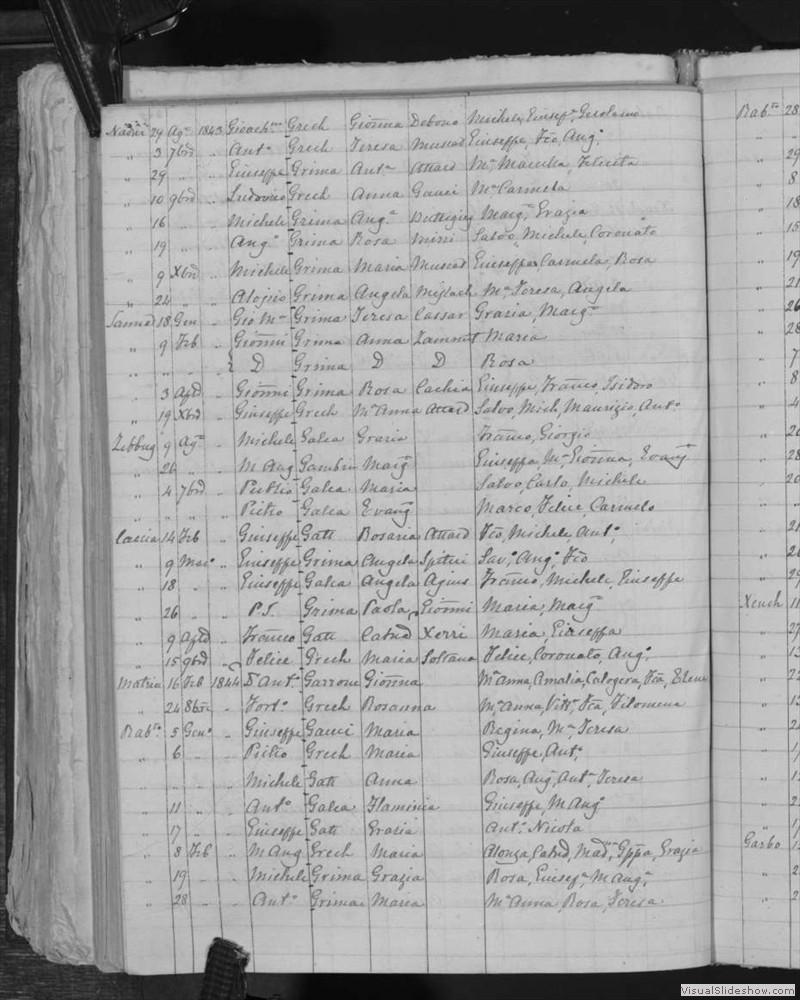 Nadur 29 Ag. 1843 Gioach.no Grech Gionna Debono Michele, Giusep.e Gerolamo
" 3 7bre " Ant.o Grech Teresa Muscat Giuseppe, Fco, Ang.o
" 29 " " Giuseppe Grima Ant.a Attard M.a Felicita
" 10 9bre " Ludovico Grech Anna Gauci M.a Carmela
" 16 " " Michele Grima Ang.a Buttigieg Marg.a Grazia
" 19 " " Ang.o Grima Rosa Salvo, Michele, Coronato
" 9 Xbre " Michele Grima Maria Muscat Giuseppa, Carmela, Rosa
" 24 " " Aloisio Grima Angela Mifsud M.a Teresa, Angela
Sannat 18 Gen " Gio M.a Grima Teresa Cassar Grazia, Marg.a
" 9 Feb " Gionni Grima Anna Zammit Maria
" " " { D Grima D D Rosa
" 3 Aple " Gionni Grima Rosa Cachia Giuseppe, Franco, Isidoro
" 19 Xbre " Giuseppe Grech M.a Anna Attard Salvo, Mich, Maurizio, Ant.o
Zebbug 9 Ag.o Michele Galea Grazia Franco, Giorgio
" 26 " M Ang Marg.a Giuseppa, M.a Gionna, Evang
" 4 7bre " Publio Galea Maria Salvo, Carlo, Michele
" " " Pietro Galea Evang Marco, Felice, Carmelo
Caccia 14 Feb " Giuseppe Gatt Rosaria Attard Fco, Michele, Ant.o
" 9 Mar.o " Giuseppe Grima Angela Spiteri Sav.o Ang.o Fco
" 18 " " Giuseppe Galea Angela Agius Franco, Michele, Giuseppe
" 26 " " P.S. Grima Paola, Gionni Maria, Marg.a
" 9 Aple " Franco Gatt Catnd Xerri Maria, Giuseppa
" 15 9bre " Felice Grech Maria Soltana Felice, Coronato, Ang.o
Matrice 16 Feb 1844 D. Ant.o Garrone Gionna M.a Anna, Amalia, Calogera, Fca, Elena
" 24 8bre " Fort.o Grech Rosanna M.a Anna, Vitt.a Fca, Filomena
Rab.to 5 Gen.o " Giuseppe Gauci Maria Regina, M.a Teresa
" 6 " Pietro Grech Maria Giuseppe, Ant.o
" " Michele Gatt Anna Rosa, Ang, Ant.a Teresa
" 11 " " Ant.o Galea Flaminia Giuseppe, M Ang.o
" 17 " " Giuseppe Gatt Grazia Ant.o Nicola
" 8 Feb " M Ang Grech Maria Catnd, Mad.na Gppa, Grazia
" 19 " Michele Grima Grazia Rosa, Giusep.e M Ang.o
" 28 " " Ant.o Grima Maria M.a Anna, Rosa, Teresa
Rab.to 28
Xeuch
Garbo
VisualSlideshow.com